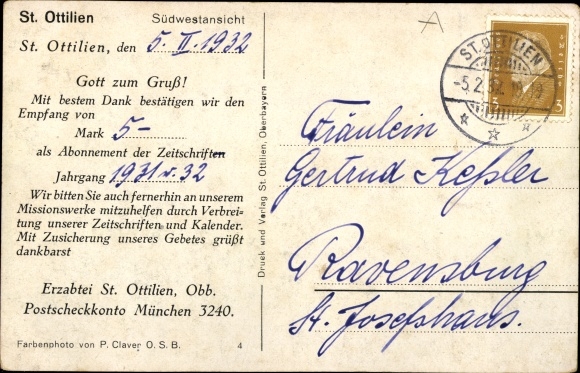 St. Ottilien Südwestansicht
St. Ottilien, den 5. II. 1932
Gott zum Gruß!
Mit bestem Dank bestätigen wir den
Empfang von
Mark 5-
als Abonnement der Zeitschriften
Jahrgang 1931 u. 32
Wir bitten Sie auch fernerhin an unserem
Missionswerke mitzuhelfen durch Verbrei-
tung unserer Zeitschriften und Kalender.
Mit Zusicherung unseres Gebetes grüßt
dankbarst
Erzabtei St. Ottilien, Obb.
Postscheckkonto München 3240.
Farbenphoto von P. Claver O. S. B. 4
Druck und Verlag St. Ottilien, Oberbayern
A
ST. OTTILIEN
-5.2.32.
3 3
Fräulein
Gertrud Keßler
Ravensburg
St. Josefshaus.